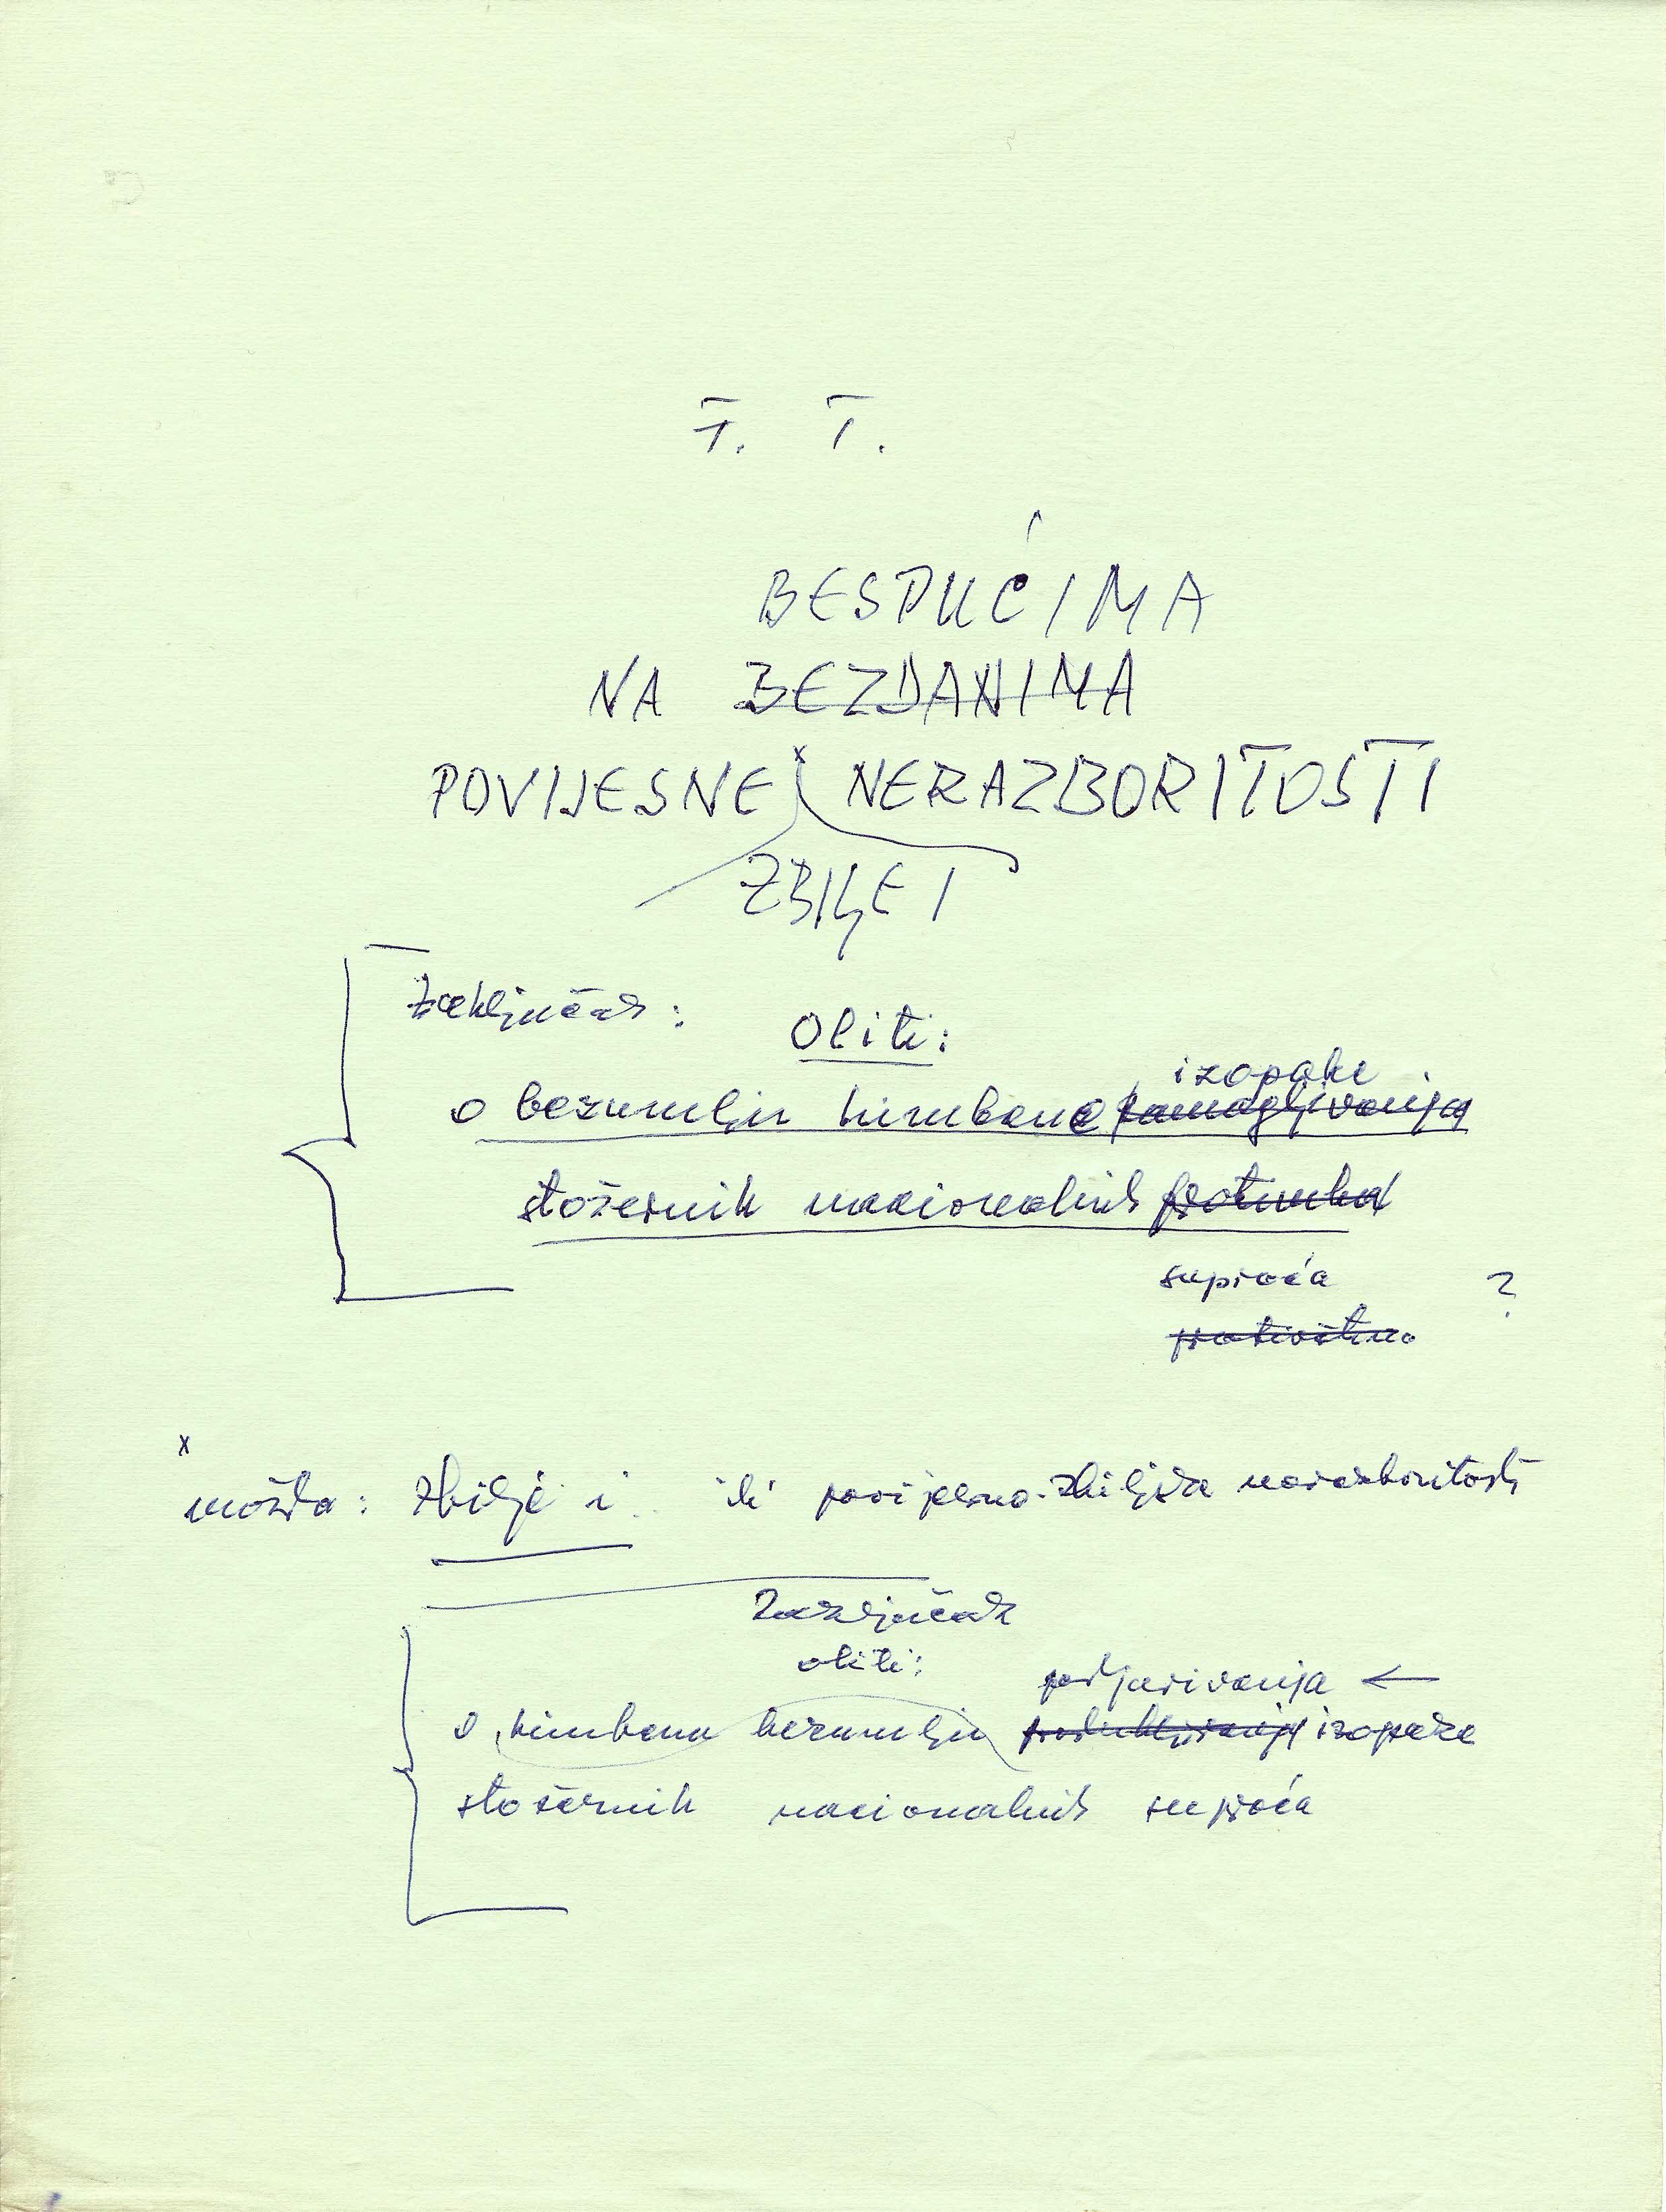 T. T.
BESPUĆIMA
NA BEZDANIMA
POVIJESNE x NERAZBORITOSTI
ZBILJE I
Zaključak:
Oliti:
izopake
o bezumlju himbene zamagljivanja
stožernih nacionalnih
suproća ?
protivština
x
možda: Zbilje i .. ili povijesno-zbiljske nerazboritosti
Zaključak
oliti:
podjarivanja ←
o himbenu bezumlju izopake
stožernih nacionalnih suproća